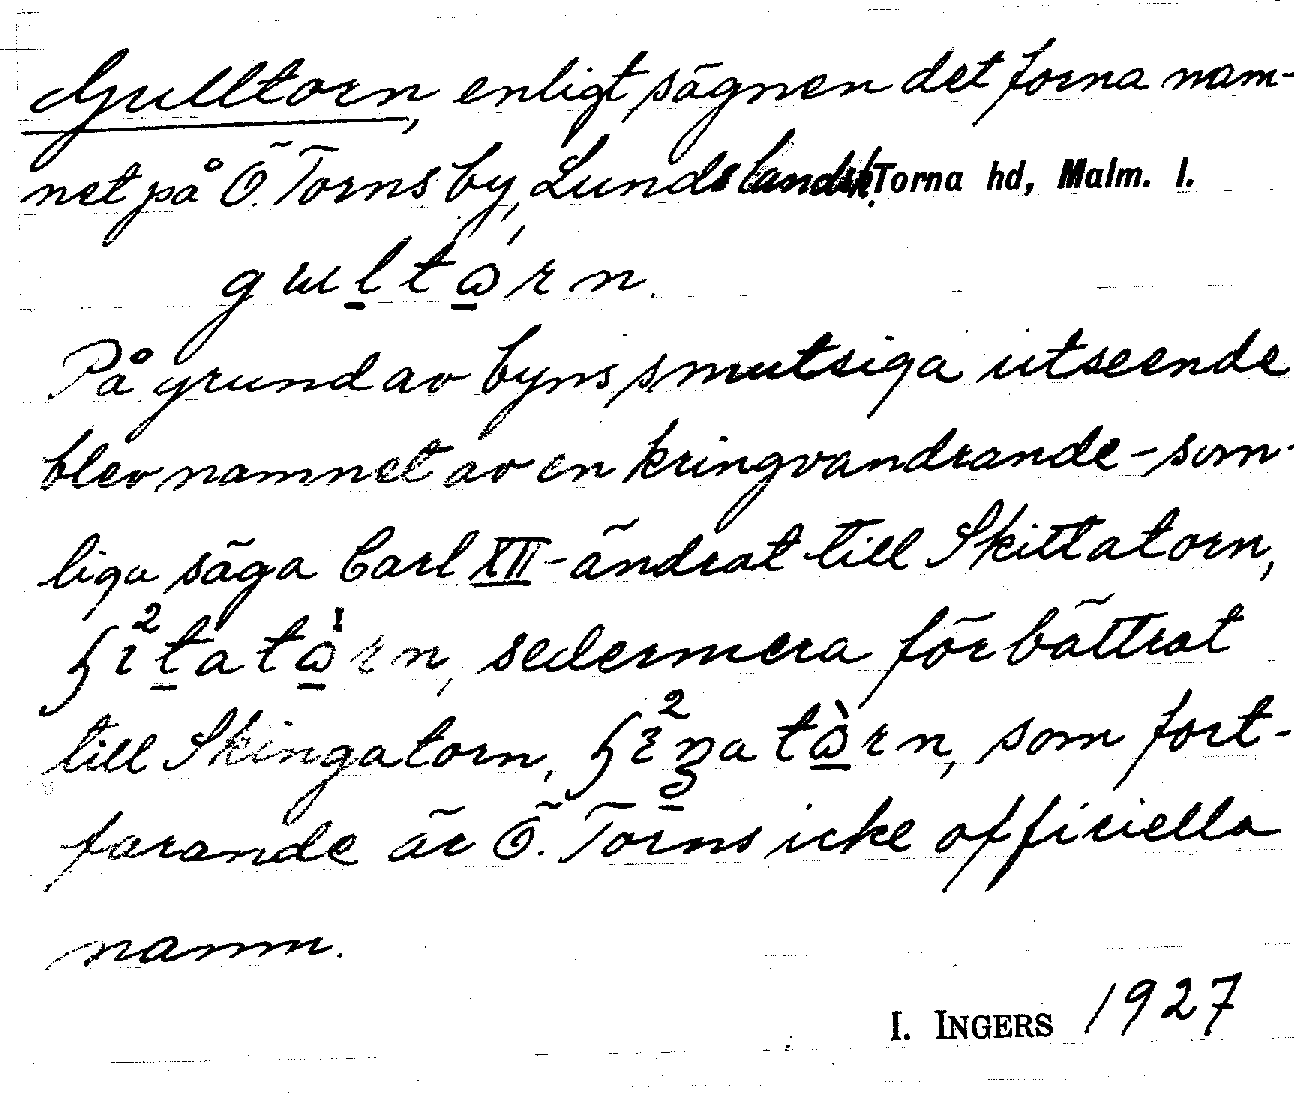 Gulltorn, enligt sägnen det forna nam-
net på Ö. Torns by, Lunds landsk. Torna hd, Malm. l.
På grund av byns smutsiga utseende
blev namnet av en kringvandrande - som-
liga säga Carl XII - ändrat till Skittatorn,
sedermera förbättrat
till Skingatorn, som fort-
farande är Ö. Torns icke officiella
namn.
I. INGERS 1927